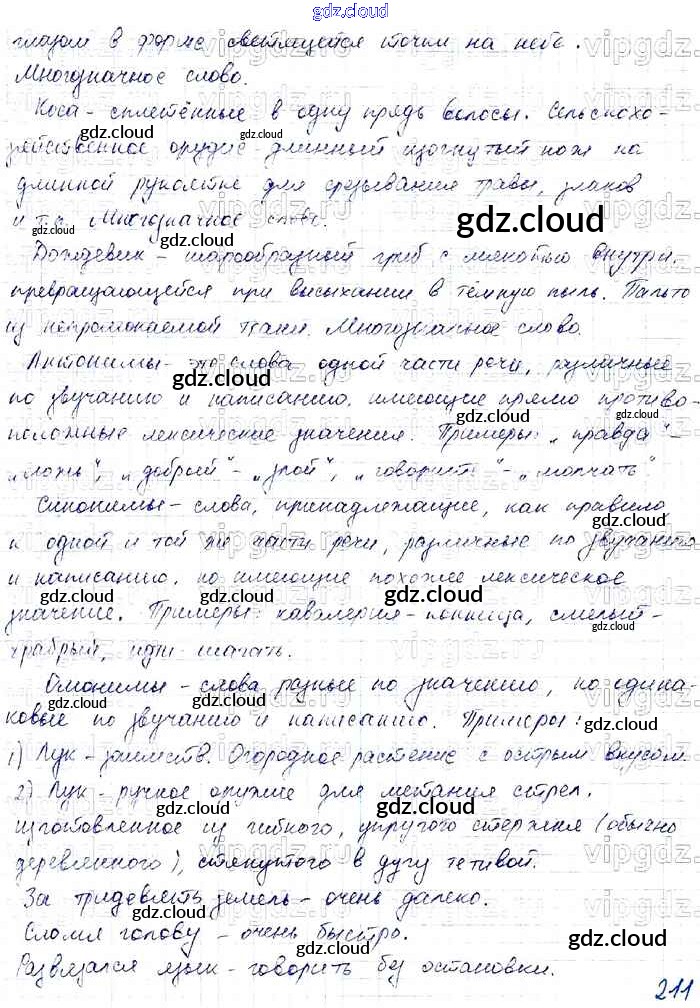 gdz.cloud
глазом в форме светящейся точки на небе.
Многозначное слово.
Коса - сплетённые в одну прядь волосы. Сельскохо-
зяйственное орудие - длинный изогнутый нож на
длинной рукоятке для срезывания травы, злаков
и т.д. Многозначное слово.
Дождевик - шарообразный гриб с мякотью внутри,
превращающейся при высыхании в тёмную пыль. Пальто
из непромокаемой ткани. Многозначное слово.
Антонимы - это слова одной части речи, различные
по звучанию и написанию, имеющие прямо противо-
положные лексические значения. Примеры: „правда" -
„ложь", „добрый" - „злой", „говорить" - „молчать"
Синонимы - слова, принадлежащие, как правило,
к одной и той же части речи, различные по звучанию
и написанию, но имеющие похожее лексическое
значение. Примеры: кавалерия - конница, смелый -
храбрый, идти - шагать.
Омонимы - слова разные по значению, но одина-
ковые по звучанию и написанию. Примеры:
1) Лук - заимств. Огородное растение с острым вкусом.
2) Лук - ручное оружие для метания стрел,
изготовленное из гибкого, упругого стержня (обычно
деревянного), стянутого в дугу тетивой.
За тридевять земель - очень далеко.
Сломя голову - очень быстро.
Развязался язык - говорить без остановки.
211